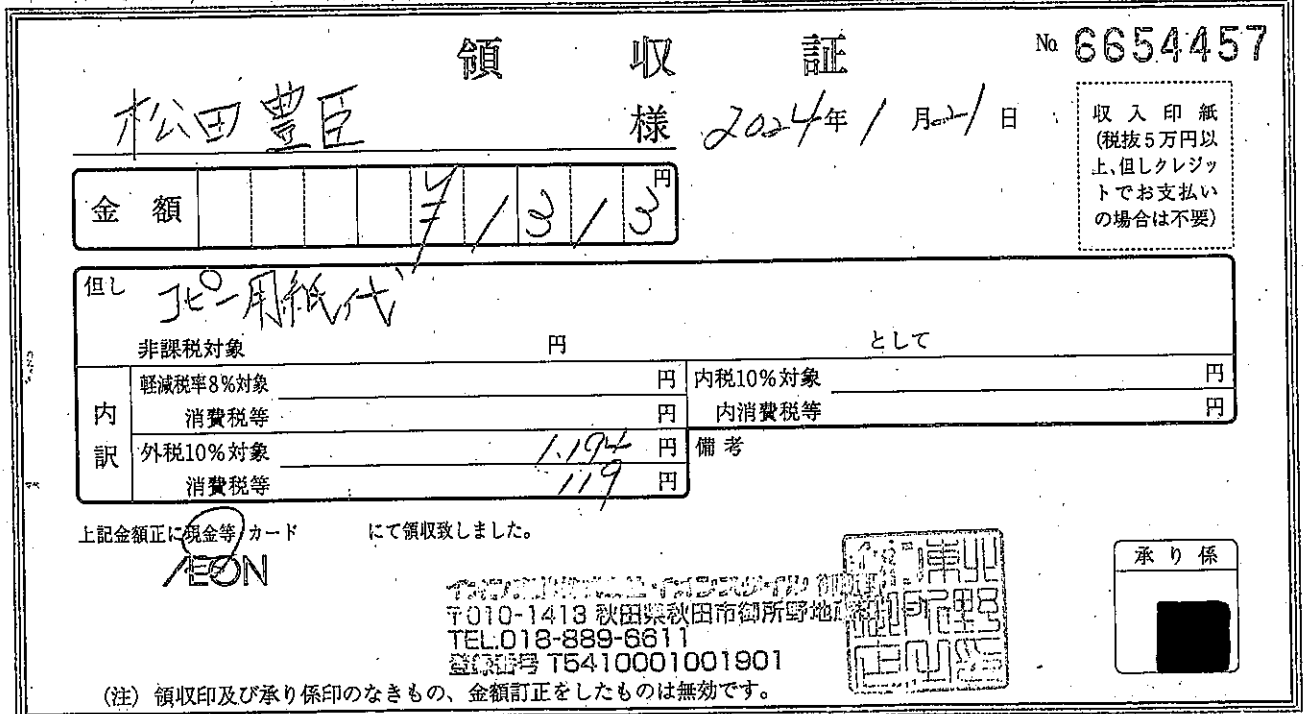 領収証 № 6654457
松田豊臣 様 2024年1月21日
収入印紙
(税抜5万円以
上、但しクレジッ
トでお支払い
の場合は不要)
金額 ¥1313円
但し コピー用紙代
非課税対象 円 として
内訳
軽減税率8%対象 円
消費税等 円
外税10%対象 1,194円
消費税等 119円
内税10%対象 円
内消費税等 円
備考
上記金額正に現金等/カード にて領収致しました。
AEON
〒010-1413 秋田県秋田市御所野地蔵田
TEL.018-889-6611
登録番号 T5410001001901
承り係
(注) 領収印及び承り係印のなきもの、金額訂正をしたものは無効です。